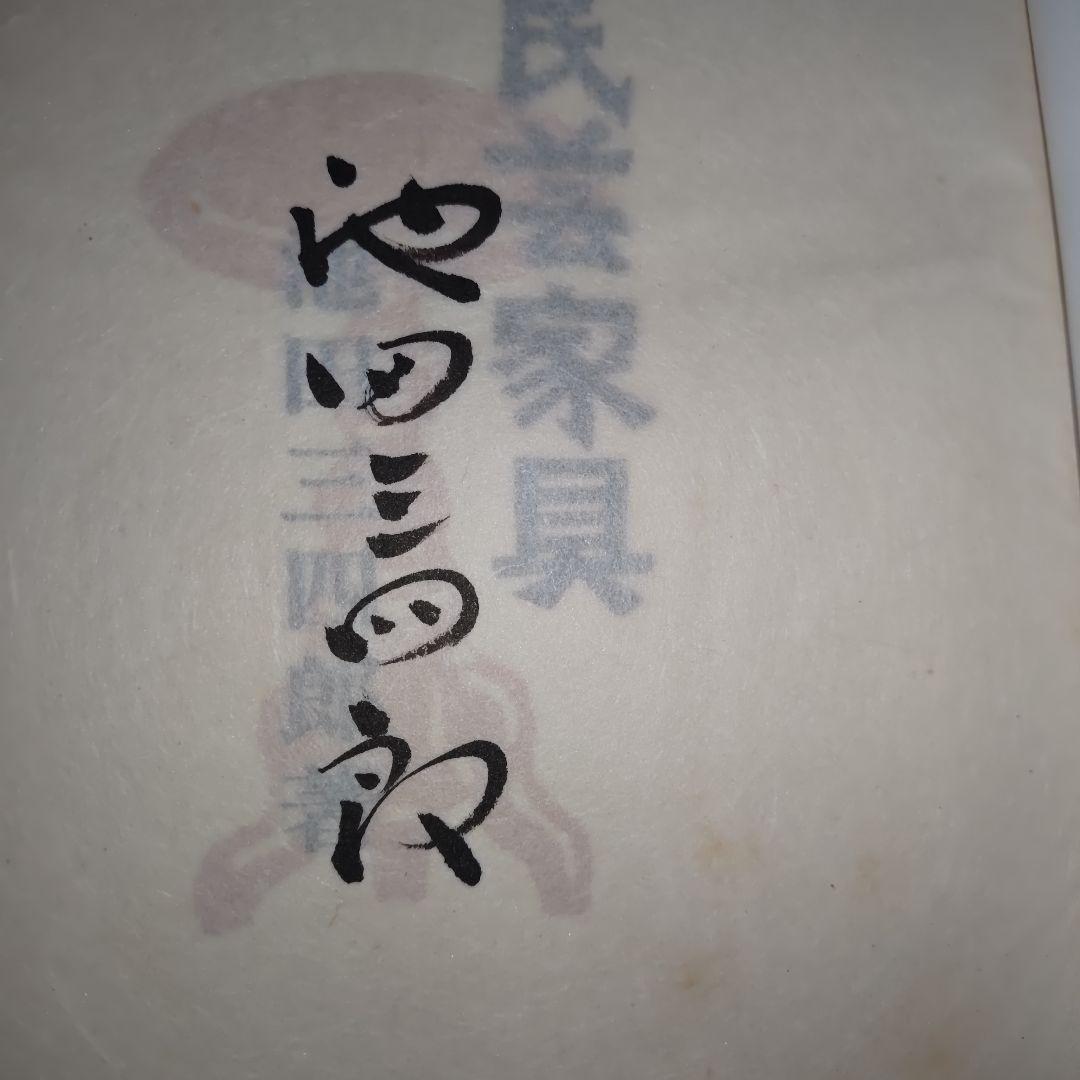 民芸家具
池田三四郎
池田三四郎 著